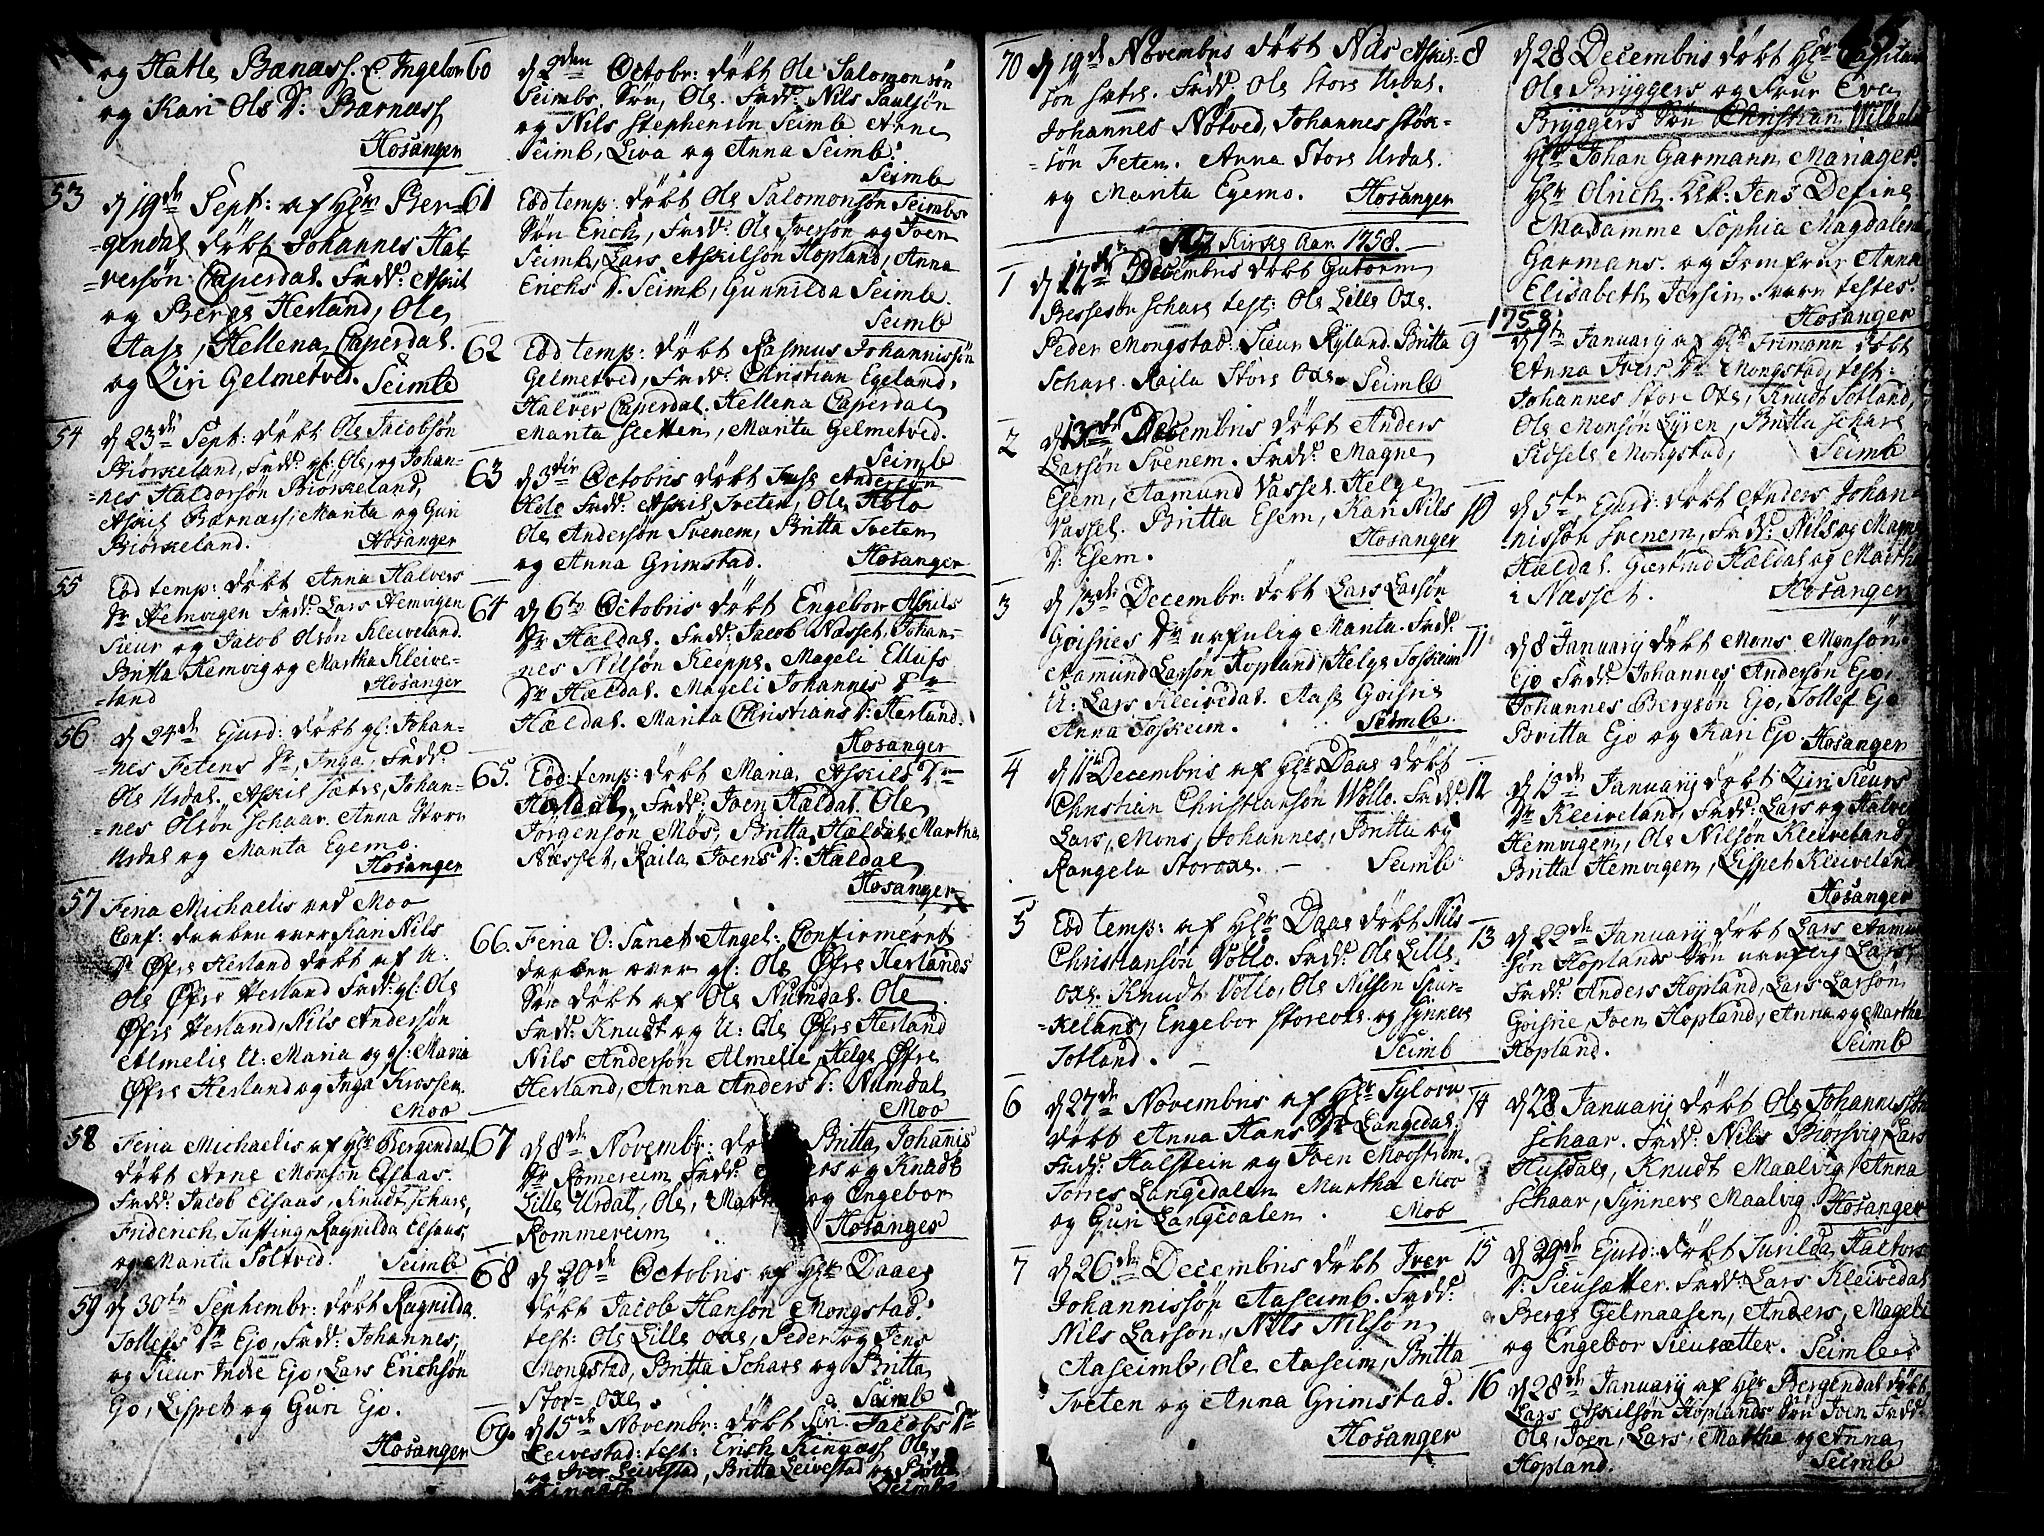 og Halle Barnæss. & Ingebor
og Kari Ols Dr: Barnæss
Hosanger
53 d 19de Sept: af Hlr Ber=
=gendal döbt Johannes Hal-
=versön Caperdal. Fadd: Askiel
og Berge Herland, Ole
Aase, Hellena, Caperdal.
og Ziri Gelmetved. Seimb
54 d 23de Sept: döbt Ole Jacobsön
Biörkeland, Fadd: gl: Ole, og Johan-
=nes Haldorsön Biörkeland,
Askiel Barnæss, Marita og Guri
Biörkeland. Hosanger
55 Eod temp: döbt Anna Halvers
Dr Hemvigen Fadd: Lars Hemvigen
Sieur og Jacob Olsön Kleiveland.
Britta Hemvig og Martha Kleive-
=land Hosanger
56 d 24de Ejusd: döbt gl: Johan-
=nes Fetens Dr, Inga, Fadd:
Ole Urdal, Askiel Sætre, Johan-
=nes Olsön Schaar. Anna Store
Urdal og Marita Egemo.
Hosanger
57 Feria Michaelis ved Moo
Conf: daaben over Kari Nils
Dr Øfre Herland döbt af U:
Ole Øfre Herland Fadd: gl: Ole
Øfre Herland, Nils Andersön
Almelie U: Maria og gl: Maria
Øfre Herland og Inga Krossen.
Moo
58 Feria Michaelis af Hlr Bergendal
döbt Arne Monsön Elsaas.
Fadd: Jacob Elsaas, Knudt Schare,
Friderich Tusting, Ragnilda Elsaas,
og Marita Soltved. Seimb
59 d 30te Septembr: döbt Ragnilda
Tollefs Dr Ejo, Fadd: Johannes,
og Sieur Indre Ejo, Lars Erichsön
Ejo, Lispet og Guri Ejo.
Hosanger
60 d 2den Octobr: döbt Ole Salomonsön
Seimbs Sön, Ole. Fadd: Nils Paulsön
og Nils Stephensön Seimb Arne
Seimb, Liva og Anna Seimb.
Seimb
61 Eod temp: döbt Ole Salomonsön Seimbs
Sön Erich, Fadd: Ole Iversön og Joen
Seimb, Lars Askilsön Hopland, Anna
Erichs D. Seimb, Gunnilda Seimb.
Seimb
62 Eod temp: döbt Rasmus Johannissön
Gelmetved, Fadd: Christian Egeland,
Halver Caperdal. Hellena Caperdal
Marita Sletten, Marita Gelmetved.
Seimb
63 d 3die Octobris döbt Andersön
Holo Fadd: Askiel Tveten, Ole Holo
Ole Andersön Svenem, Britta Tveten
og Anna Grimstad. Hosanger
64 d 6te Octobris döbt Engebor Askils
Dr Hældal. Fadd: Jacob Næsset, Johan-
nes Nilsön Kleppe. Mageli Ellufs
Dr Hældal. Mageli Johannes Dr
Hældal. Marita Christians D: Herland.
Hosanger
65. Eod: temp: döbt Maria, Askils Dr
Hældal, Fadd: Joen Hældal. Ole
Jörgensön Mös, Britta Hældal, Martha
Næsset, Raila Joens D: Hældal
Hosanger
66. Feria O: Sanct Angel: Confirmeret
daaben over gl: Ole Øfre Herlands
Sön döbt af Ole Numdal. Ole
Fadd: Knudt og U: Ole Øfre Herland
Nils Andersön Almelie Helge Øfre
Herland, Anna Anders D: Numdal
Moo
67 d 8de Novembr: Britta Johannis
Dr Romereim Fadd: og Knudt
Lille Urdal, Ole, og Engebor
Rommereim Hosanger
68 d 20de Octobris af Hlr Daae
döbt Jacob Hansön Mongstad.
test: Ole Lille Oxe, Peder og Jens
Mongstad, Britta Schare og Britta
Stor= Oxe. Seimb
69. d 15de Novembr: döbt Siri Jacobs Dr
Leivestad: test: Erich Ole
og Iver Leivestad, Britta Leivestad og Britta
Seimb
70 d 19de Novembris döbt Nils Askel-
sön Sætre. Fadd: Ole Store Urdal.
Johannes Nötved, Johannes
=sön Feten. Anna Store Urdal.
og Marita Egemo. Hosanger
Nyt Kirke Aar 1758.
1 d 12de Decembris döbt Guttorm
Bessesön Schare test: Ole Lille Oxe.
Peder Mongstad. Sieur Ryland. Britta
Schare. Raila Store Oxe. Seimb
2 d 13de Decembris döbt Anders
Larsön Svenem. Fadd: Magne
Esem, Aamund Vassel. Helge
Vassel. Britta Esem, Kari Nils
D: Esem. Hosanger
3 d 13de Decembr: döbt Lars Larsön
Goisries Dr uæfulig Marita. Fadd:
Aamund Larsön Hopland, Helge Toskeim
U: Lars Kleivedal. Aase Goisrie
Anna Toskeim. Seimb
4 d 11te Decembris af Hlr Daae döbt
Christian Christiansön Vollo. Fadd:
Lars, Mons, Johannes, Britta og
Rangela Storoxe. Seimb
5 Eod temp: af Hlr Daae döbt Nils
Christiansön Vollo. Fadd: Ole Lille
Oxe. Knudt Vollo, Ole Nilsen Spur-
=keland, Engebor Storeoxe og Synneve
Totland. Seimb
6 d 27de Novembris af Hlr Sylovu
döbt Anna Hans Dr Langedal.
Fadd: Halstein og Joen Mooström.
Torres Langedalen Martha Moo
og Guri Langedalen. Moo
7 d 26de Decembris döbt Iver
Johannissön Aaseimb. Fadd:
Nils Larsön, Nils Nilsön
Aaseimb, Ole Aaseim, Britta
Tveten og Anna Grimstad.
Hosanger
8 d 28 Decembris döbt Hlr Capitain
Ole Bryggers og Frue Eva
Bryggers Sön Christian Wilhelm
Hlr Johan Garmann, Manager.
Hlr Olrich. Jens Define
Madamme Sophia Magdalena
Garmans. og Jomfrue Anna
Elisabeth Jersin vare testes.
Hosanger
1758
9 d 1te January af Hlr Frimann döbt
Anna Ivers Dr Mongstad, test:
Johannes Store Oxe, Knudt Totland,
Ole Monsön Lyren, Britta Schare
Sidsele Mongstad, Seimb
10 d 5te Ejusd: döbt Anders Johan-
nissön Svenem, Fadd: Nils og Magne
Hældal. Giertrud Hældal og Martha
i Næsset. Hosanger
11 d 8 January döbt Mons Monsön
Ejo Fadd: Johannes Andersön Ejo,
Johannes Bergsön Ejo, Tollef Ejo
Britta Ejo og Kari Ejo. Hosanger
12 d 15de January döbt Ziri Sieurs
Dr Kleiveland, Fadd: Lars og Halver
Hemvigen, Ole Nilsön Kleiveland,
Britta Hemvigen, Lispet Kleiveland
Hosanger
13 d 22de January döbt Lars Aamund
sön Hoplands Sön uæfulig Lars
Fadd: Anders Hopland, Lars Larsön
Goisrie, Joen Hopland, Anna og Martha
Hopland. Seimb
14 d 28 January döbt Ole Johannissön
Schaar. Fadd: Nils Biörsvig Lars
Husdale, Knudt Maalvig Anna
Schaar, Synneve Maalvig. Hosanger
15 d 29de Ejusd: döbt Turilda Haltors
D: Sieusætter. Fadd: Lars Kleivedal
Berge Gelmaasen, Anders, Mageli
og Engebor Sieusætter. Seimb
16 d 28de January af Hlr Bergendal döbt
Lars Askilsön Hoplands Sön Joen Fadd:
Ole, Joen, Lars, Martha og Anna
Hopland. Seimb